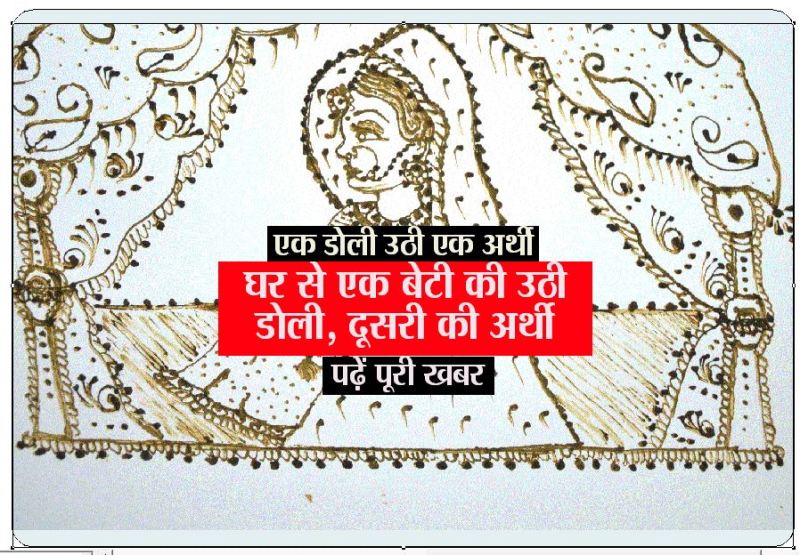 एक डोली उठी एक अर्थी
घर से एक बेटी की उठी
डोली, दूसरी की अर्थी
पढ़ें पूरी खबर